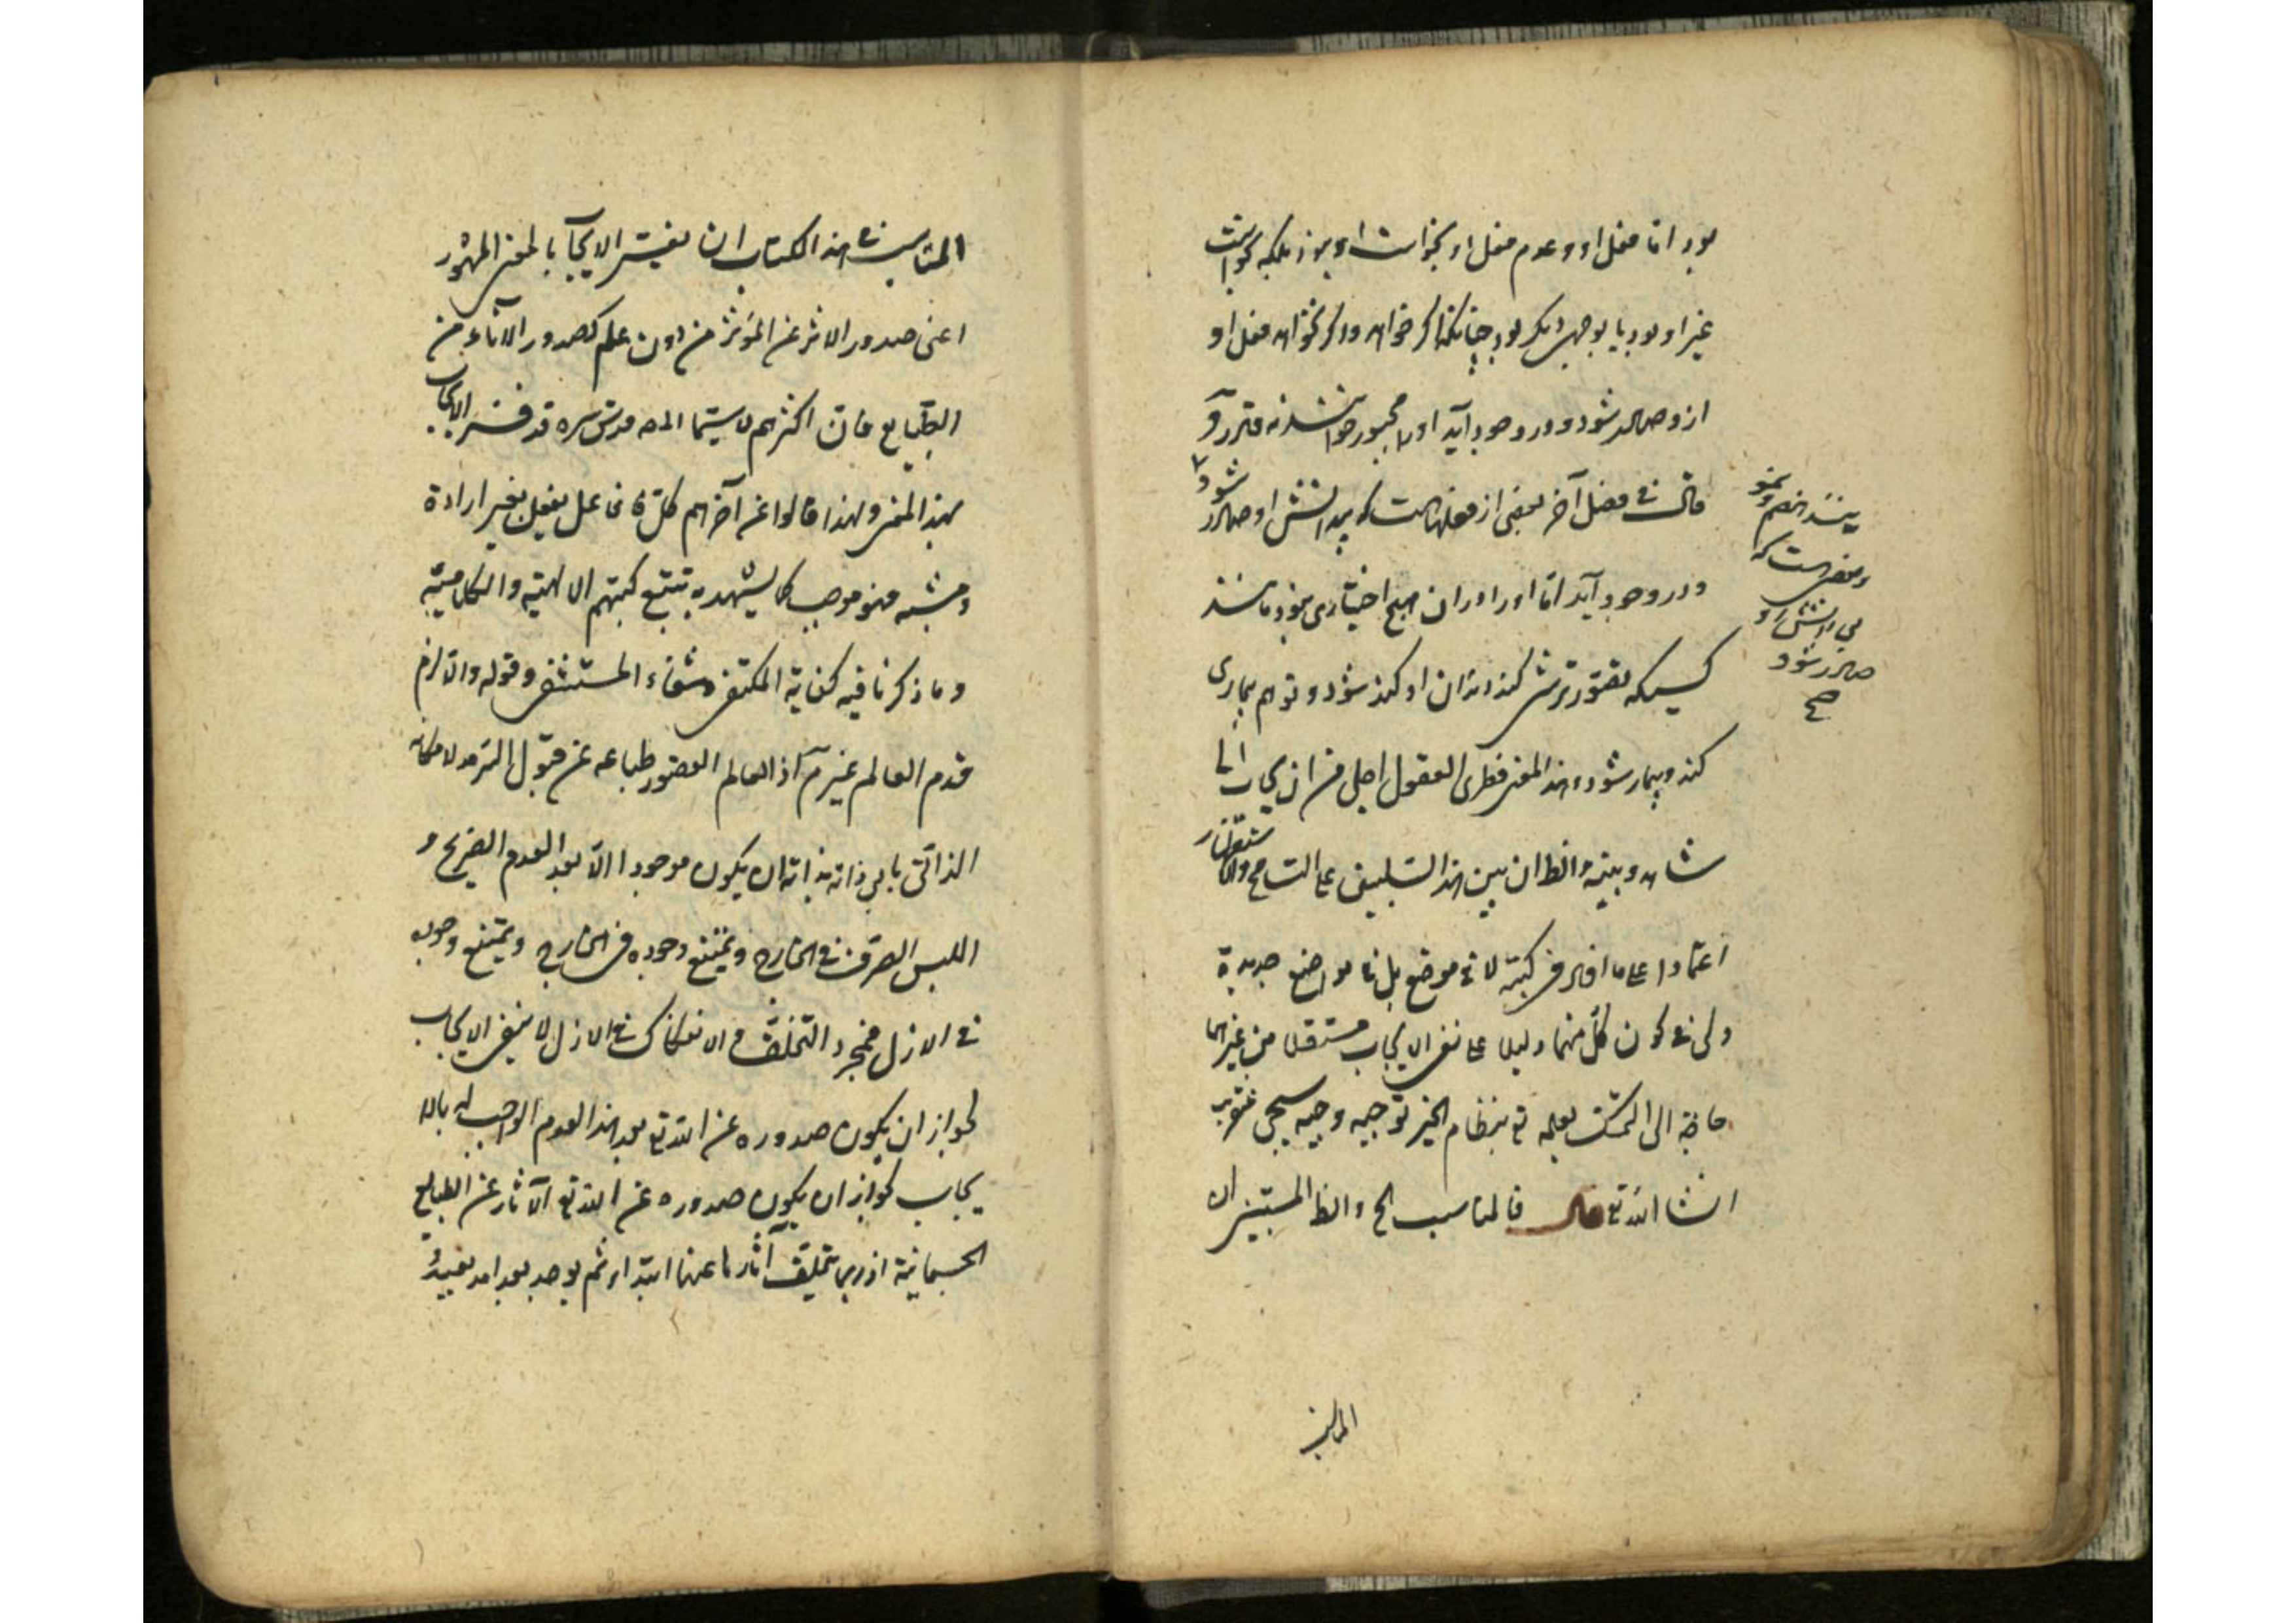 بود اما فعل او و عدم فعل او بخواست او بود بلکه بخواست
غیر او بود یا بوجهی دیگر بود چنانکه اگر خواهد و اگر نخواهد فعل او
ازو صادر شود و در وجود آید او را مجبور خوانند نه قادر و
قال فی فصل آخر بعضی از فعلهاست که بدانش او صادر شود
و در وجود آید اما او را در ان هیچ اختیاری نبود مانند
کسیکه تصور ترشی کند دندان او کند شود و توهم بیماری
کند و بیمار شود و هذا المعنی فطری العقول اجلی من ان یجاب الی
شاهد و بینة و الظ ان بین هذا التبلیغی علی التسامح و
اعتمادا علی ما افاد فی کتبه لا فی موضع بل فی مواضع جدیدة
ولی فی کون کل منهما دلیلا علی نفی الایجاب مستقلا من غیر
حاجة الی التمسک بعلمه تع بنظام الخیر توجیه وجیه سیجی عنقریب
انشا الله تع قال فالمناسب الخ و الظ المستبین ان
بینند خصم و
و بعضی هست که
بی دانش او
صادر شود
صح
المناسب فی هذا الکتاب ان یفسر الایجاب بالمعنی المشهور
اعنی صدور الاثر عن المؤثر من دون علم کصدور الاثار من
الطبایع فان اکثرهم لا سیما المص قدس سره قد فسر الایجاب
بهذا المعنی و لهذا قالوا عن آخرهم کل فاعل یفعل بغیر ارادة
و مشیة فهو موجب کما یشهد به تتبع کتبهم الالهیة و الکلامیة
و ما ذکرنا فیه کفایة المکتفی و شفاء المستشفی و قوله و الا لزم
قدم العالم غیر تم اذ العالم لقصور طباعه عن قبول السرمد لامکانه
الذاتی یابی ذاته بذاته ان یکون موجودا الا بعد العدم الصریح و
اللیس الصرف فی الخارج و یمتنع وجوده فی الخارج و یمتنع وجوده
فی الازل فمجرد التخلف و الانفکاک فی الازل لا ینفی الایجاب
لجواز ان یکون صدوره عن الله تع بعد هذا العدم الواجب له بالا
یجاب کجواز ان یکون صدوره عن الله تع الآثار عن الطبایع
الجسمانیة اذ ربما یتخلف آثارها عنها ابتداء ثم یوجد بعد امد بعید